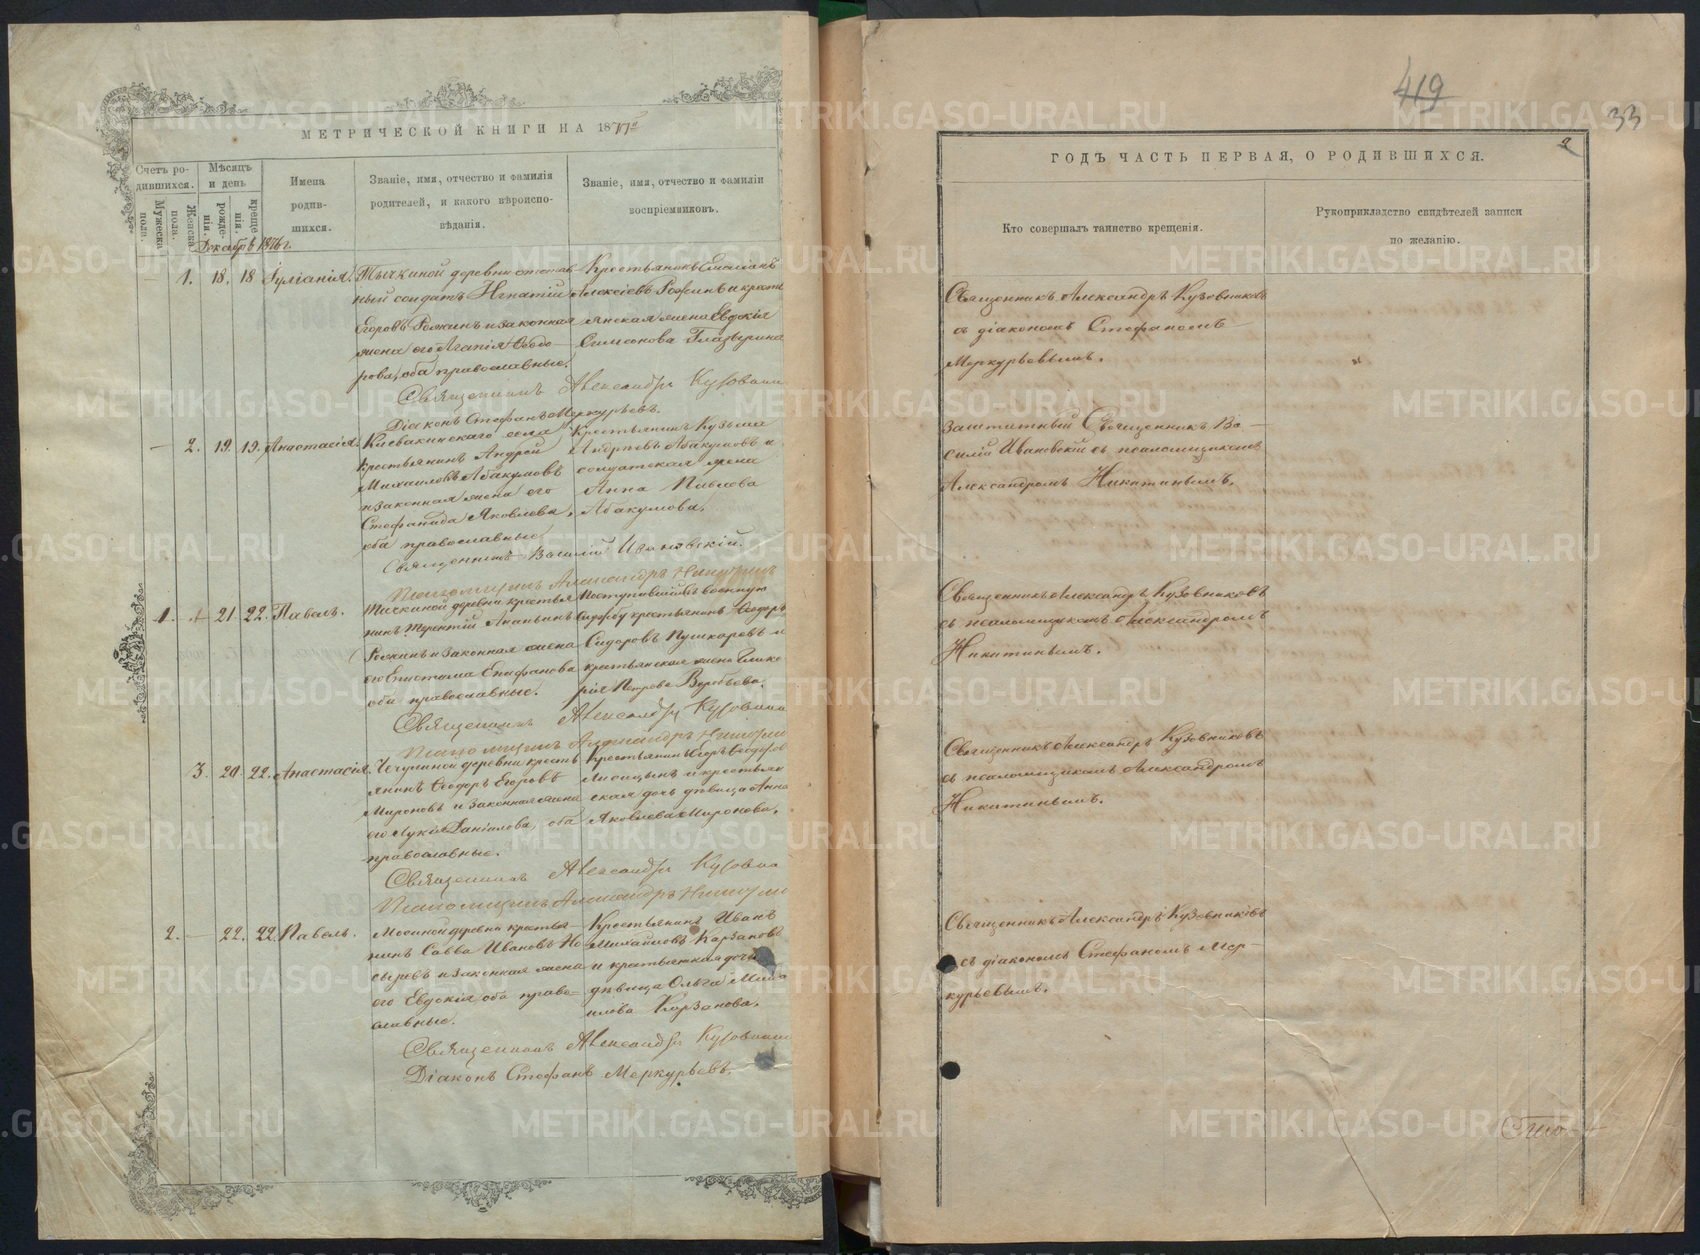 МЕТРИЧЕСКОЙ КНИГИ НА 1877й
Счетъ ро-
дившихся.
Мужеска
пола.
Женска
пола.
Мѣсяцъ
и день
рожде-
нія.
креще-
нія.
Имена
родив-
шихся.
Званіе, имя, отчество и фамилія
родителей, и какого вѣроиспо-
вѣданія.
Званіе, имя, отчество и фамиліи
воспріемниковъ.
Декабрь 1876 г.
1. 18. 18
Тычкиной деревни отстав-
ный солдатъ Игнатій
Егоровъ Рожинъ и законная
жена его Агапія Ѳеодо-
рова, оба православные.
Крестьянинъ
Алексіевъ Рожинъ и кресть
янская жена Евдокія
Симеонова
Священникъ Александръ Кузовник
Діаконъ Стефанъ Меркурьевъ.
— 2. 19. 19. Анастасія.
села
крестьянинъ Андрей
Михаиловъ Абакумовъ
и законная жена его
Стефанида Яковлева,
оба православные.
Крестьянинъ Кузьма
Андреевъ Абакумовъ и
солдатская жена
Анна Павлова
Абакумова.
Священникъ Василій Ивановскій.
Псаломщикъ Александръ Никитинъ
1. 21 22. Павелъ.
Тычкиной деревни крестья
нинъ Терентій Ананьинъ
Рожинъ и законная жена
его Епифанова
оба православные.
Поступившій въ военную
службу крестьянинъ Ѳеодоръ
Сидоровъ Пушкаревъ и
крестьянская жена Глике
рія Петрова Воробьева.
Священникъ Александръ Кузовник
Псаломщикъ Александръ Никитин
3. 20. 22. Анастасія.
деревни кресть
янинъ Ѳеодоръ Егоровъ
Мироновъ и законная жена
его Лукія Даніилова, оба
православные.
Крестьянинъ Егоръ Ѳеодоров
Лисицынъ и крестьян
ская дочь дѣвица Анна
Яковлева Миронова.
Священникъ Александръ Кузовни
Псаломщикъ Александръ Никити
2. — 22. 22. Павелъ.
Мосиной деревни крестья
нинъ Савва Ивановъ Но
сыревъ и законная жена
его Евдокія оба право-
славные.
Крестьянинъ Иванъ
Михаиловъ Карзановъ
и крестьянская дочь
дѣвица Ольга Миха
илова Карзанова.
Священникъ Александръ Кузовник
Діаконъ Стефанъ Меркурьевъ.
419
33
2
ГОДЪ ЧАСТЬ ПЕРВАЯ, О РОДИВШИХСЯ.
Кто совершалъ таинство крещенія.
Рукоприкладство свидѣтелей записи
по желанію.
Священникъ Александръ Кузовниковъ
съ діакономъ Стефаномъ
Меркурьевымъ.
Заштатный Священникъ Ва-
силій Ивановскій съ псаломщикомъ
Александромъ Никитинымъ.
Священникъ Александръ Кузовниковъ
съ псаломщикомъ Александромъ
Никитинымъ.
Священникъ Александръ Кузовниковъ
съ псаломщикомъ Александромъ
Никитинымъ.
Священникъ Александръ Кузовниковъ
съ діакономъ Стефаномъ Мер-
курьевымъ.
METRIKI.GASO-URAL.RU